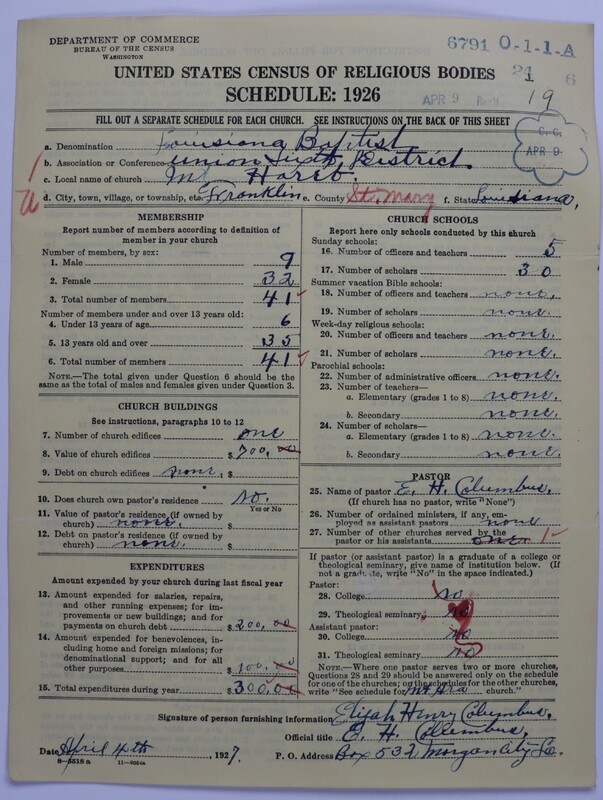 DEPARTMENT OF COMMERCE
BUREAU OF THE CENSUS
WASHINGTON
6791 0-1-1-A
UNITED STATES CENSUS OF RELIGIOUS BODIES
SCHEDULE: 1926
APR 9
19
FILL OUT A SEPARATE SCHEDULE FOR EACH CHURCH. SEE INSTRUCTIONS ON THE BACK OF THIS SHEET
C. C.
APR 9
a. Denomination Louisiana Baptist
b. Association or Conference Union Sixth District.
c. Local name of church Mt Horeb.
d. City, town, village, or township, etc. Franklin e. County St. Mary f. State Louisiana,
MEMBERSHIP
Report number of members according to definition of
member in your church
Number of members, by sex:
1. Male 9
2. Female 32
3. Total number of members 41
Number of members under and over 13 years old:
4. Under 13 years of age 6
5. 13 years old and over 35
6. Total number of members 41
NOTE.—The total given under Question 6 should be the
same as the total of males and females given under Question 3.
CHURCH BUILDINGS
See instructions, paragraphs 10 to 12
7. Number of church edifices one
8. Value of church edifices $700,00
9. Debt on church edifices none. $
10. Does church own pastor's residence No.
Yes or No
11. Value of pastor's residence (if owned by
church) none. $
12. Debt on pastor's residence (if owned by
church) none. $
EXPENDITURES
Amount expended by your church during last fiscal year
13. Amount expended for salaries, repairs,
and other running expenses; for im-
provements or new buildings; and for
payments on church debt $200,00
14. Amount expended for benevolences, in-
cluding home and foreign missions; for
denominational support; and for all
other purposes $100,00
15. Total expenditures during year $300,00
CHURCH SCHOOLS
Report here only schools conducted by this church
Sunday schools:
16. Number of officers and teachers 5
17. Number of scholars 30
Summer vacation Bible schools:
18. Number of officers and teachers none.
19. Number of scholars none.
Week-day religious schools:
20. Number of officers and teachers none.
21. Number of scholars none.
Parochial schools:
22. Number of administrative officers none.
23. Number of teachers—
a. Elementary (grades 1 to 8) none.
b. Secondary none.
24. Number of scholars—
a. Elementary (grades 1 to 8) none.
b. Secondary none.
PASTOR
25. Name of pastor E. H. Columbus.
(If church has no pastor, write "None")
26. Number of ordained ministers, if any, em-
ployed as assistant pastors none
27. Number of other churches served by the
pastor or his assistants one 1
If pastor (or assistant pastor) is a graduate of a college or
theological seminary, give name of institution below. (If
not a graduate, write "No" in the space indicated.)
Pastor:
28. College No
29. Theological seminary No
Assistant pastor:
30. College No
31. Theological seminary No
NOTE.—Where one pastor serves two or more churches,
Questions 28 and 29 should be answered only on the schedule
for one of the churches; on the schedules for the other churches,
write "See schedule for Mt church."
Signature of person furnishing information Elijah Henry Columbus.
Official title E. H. Collumbus.
Date April 4th, 1927.
P. O. Address Box 532 Morgan City La.
8—5518 a